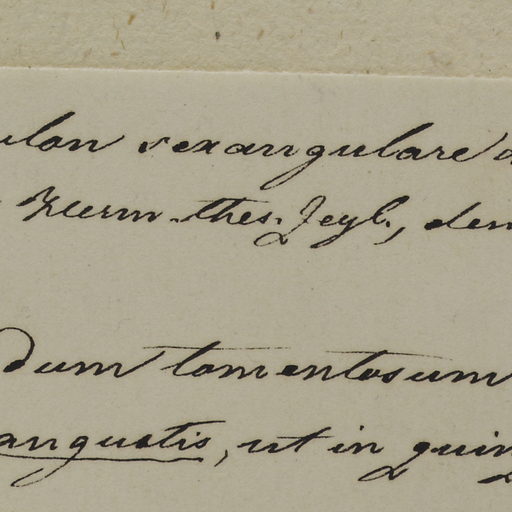 ulon sexangulare
Herm. thes. Zeyl., den
dum tomentosum
angustis, ut in quin